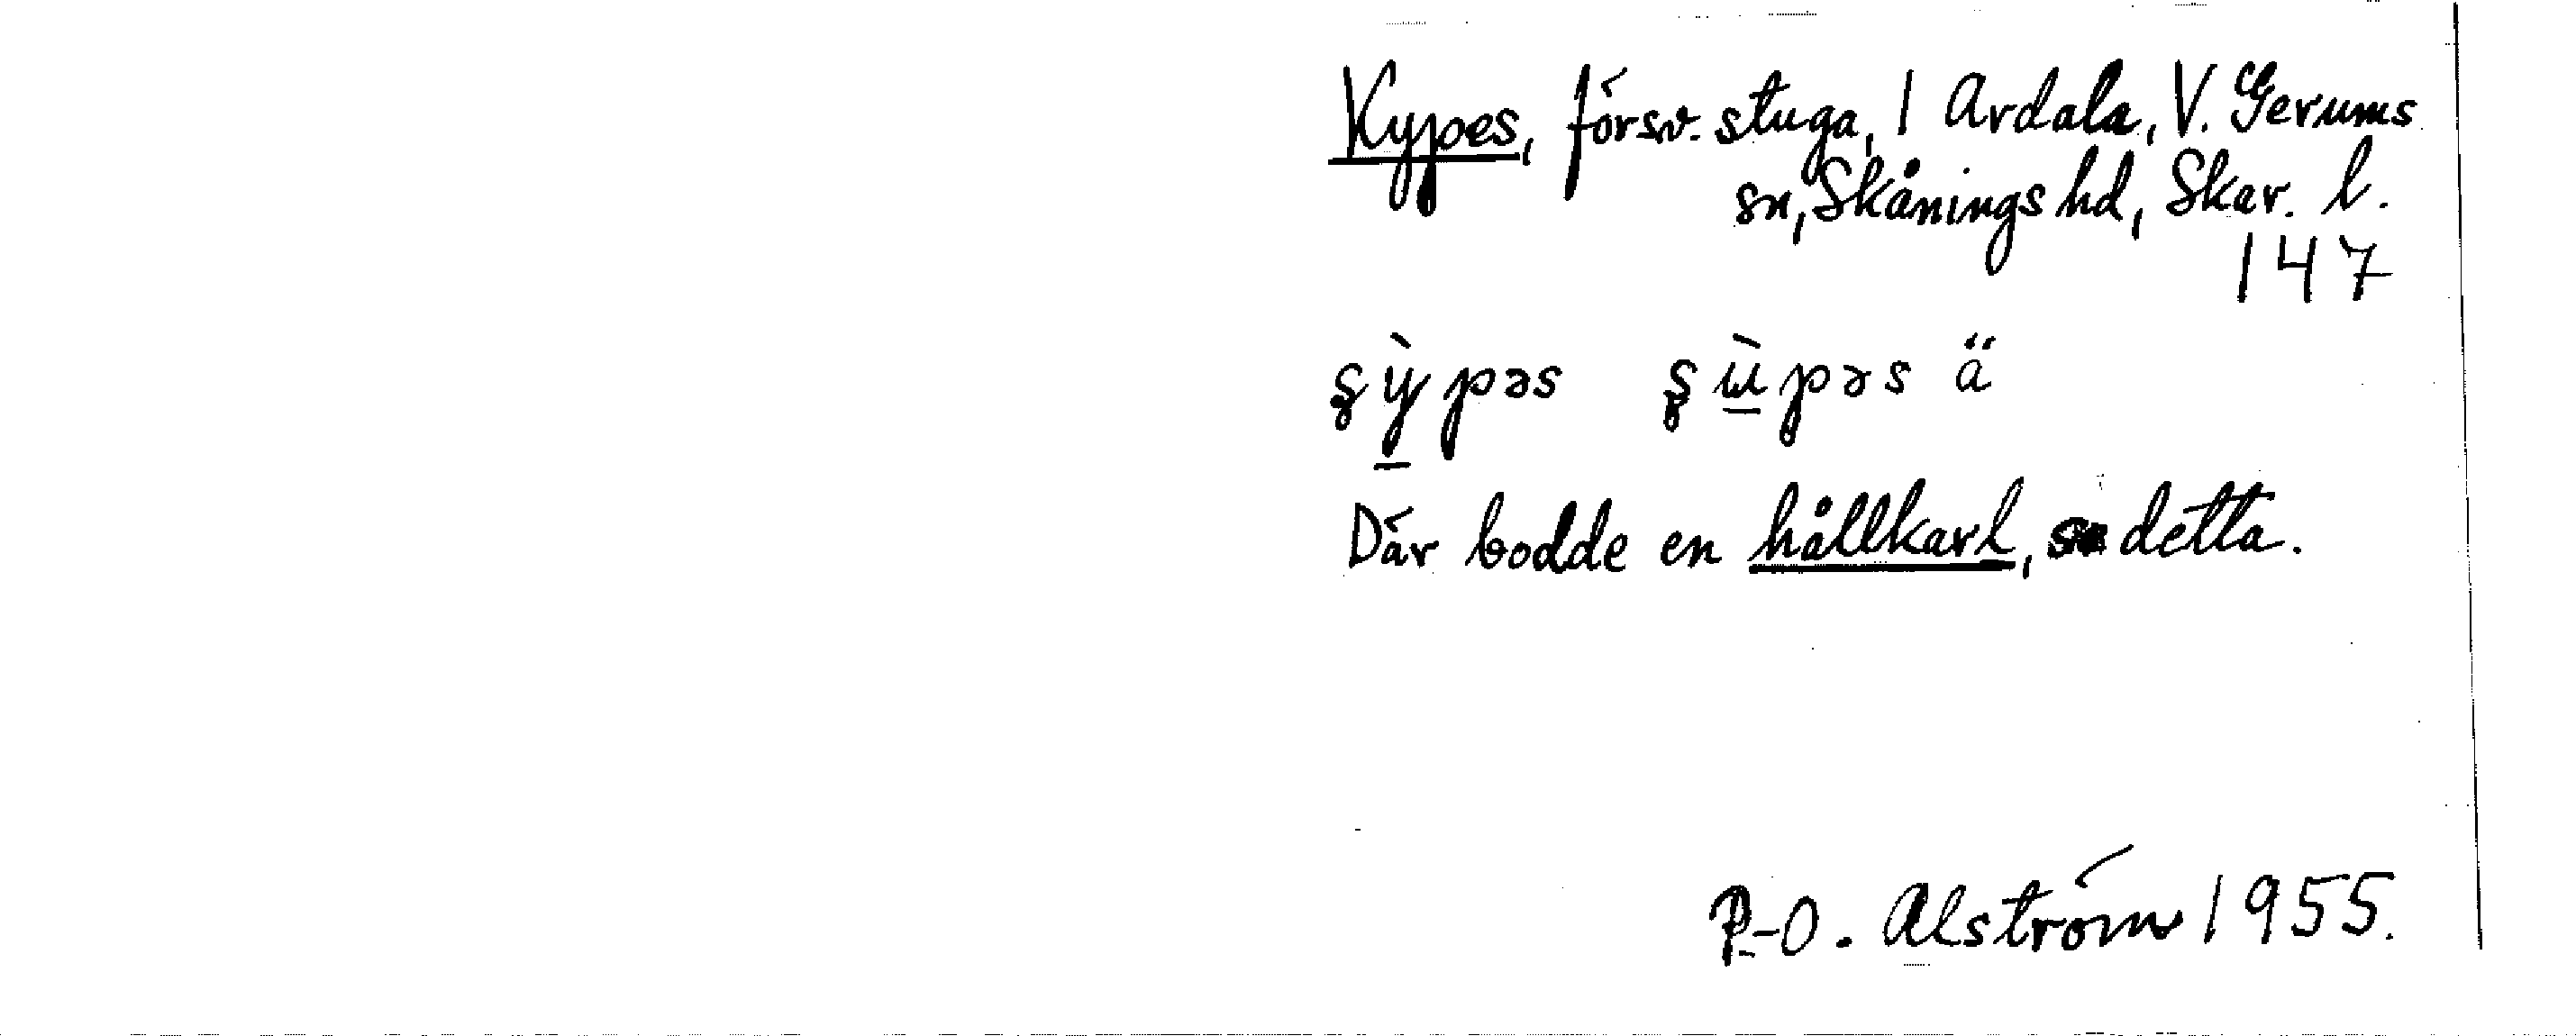 Kypes, försv. stuga, 1 Ardala, V. Gerums
sn, Skånings hd, Skar. l.
147
ȿỳ̱pəs ȿɯ̱̀pəs ä
Där bodde en hållkarl, se detta.
P-O. Alström 1955.